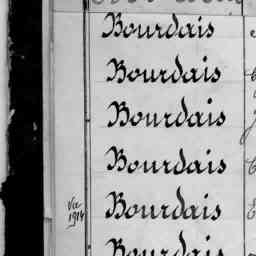 Bourdais
Bourdais
Bourdais
Bourdais
Vu
1914
Bourdais
Bourdais